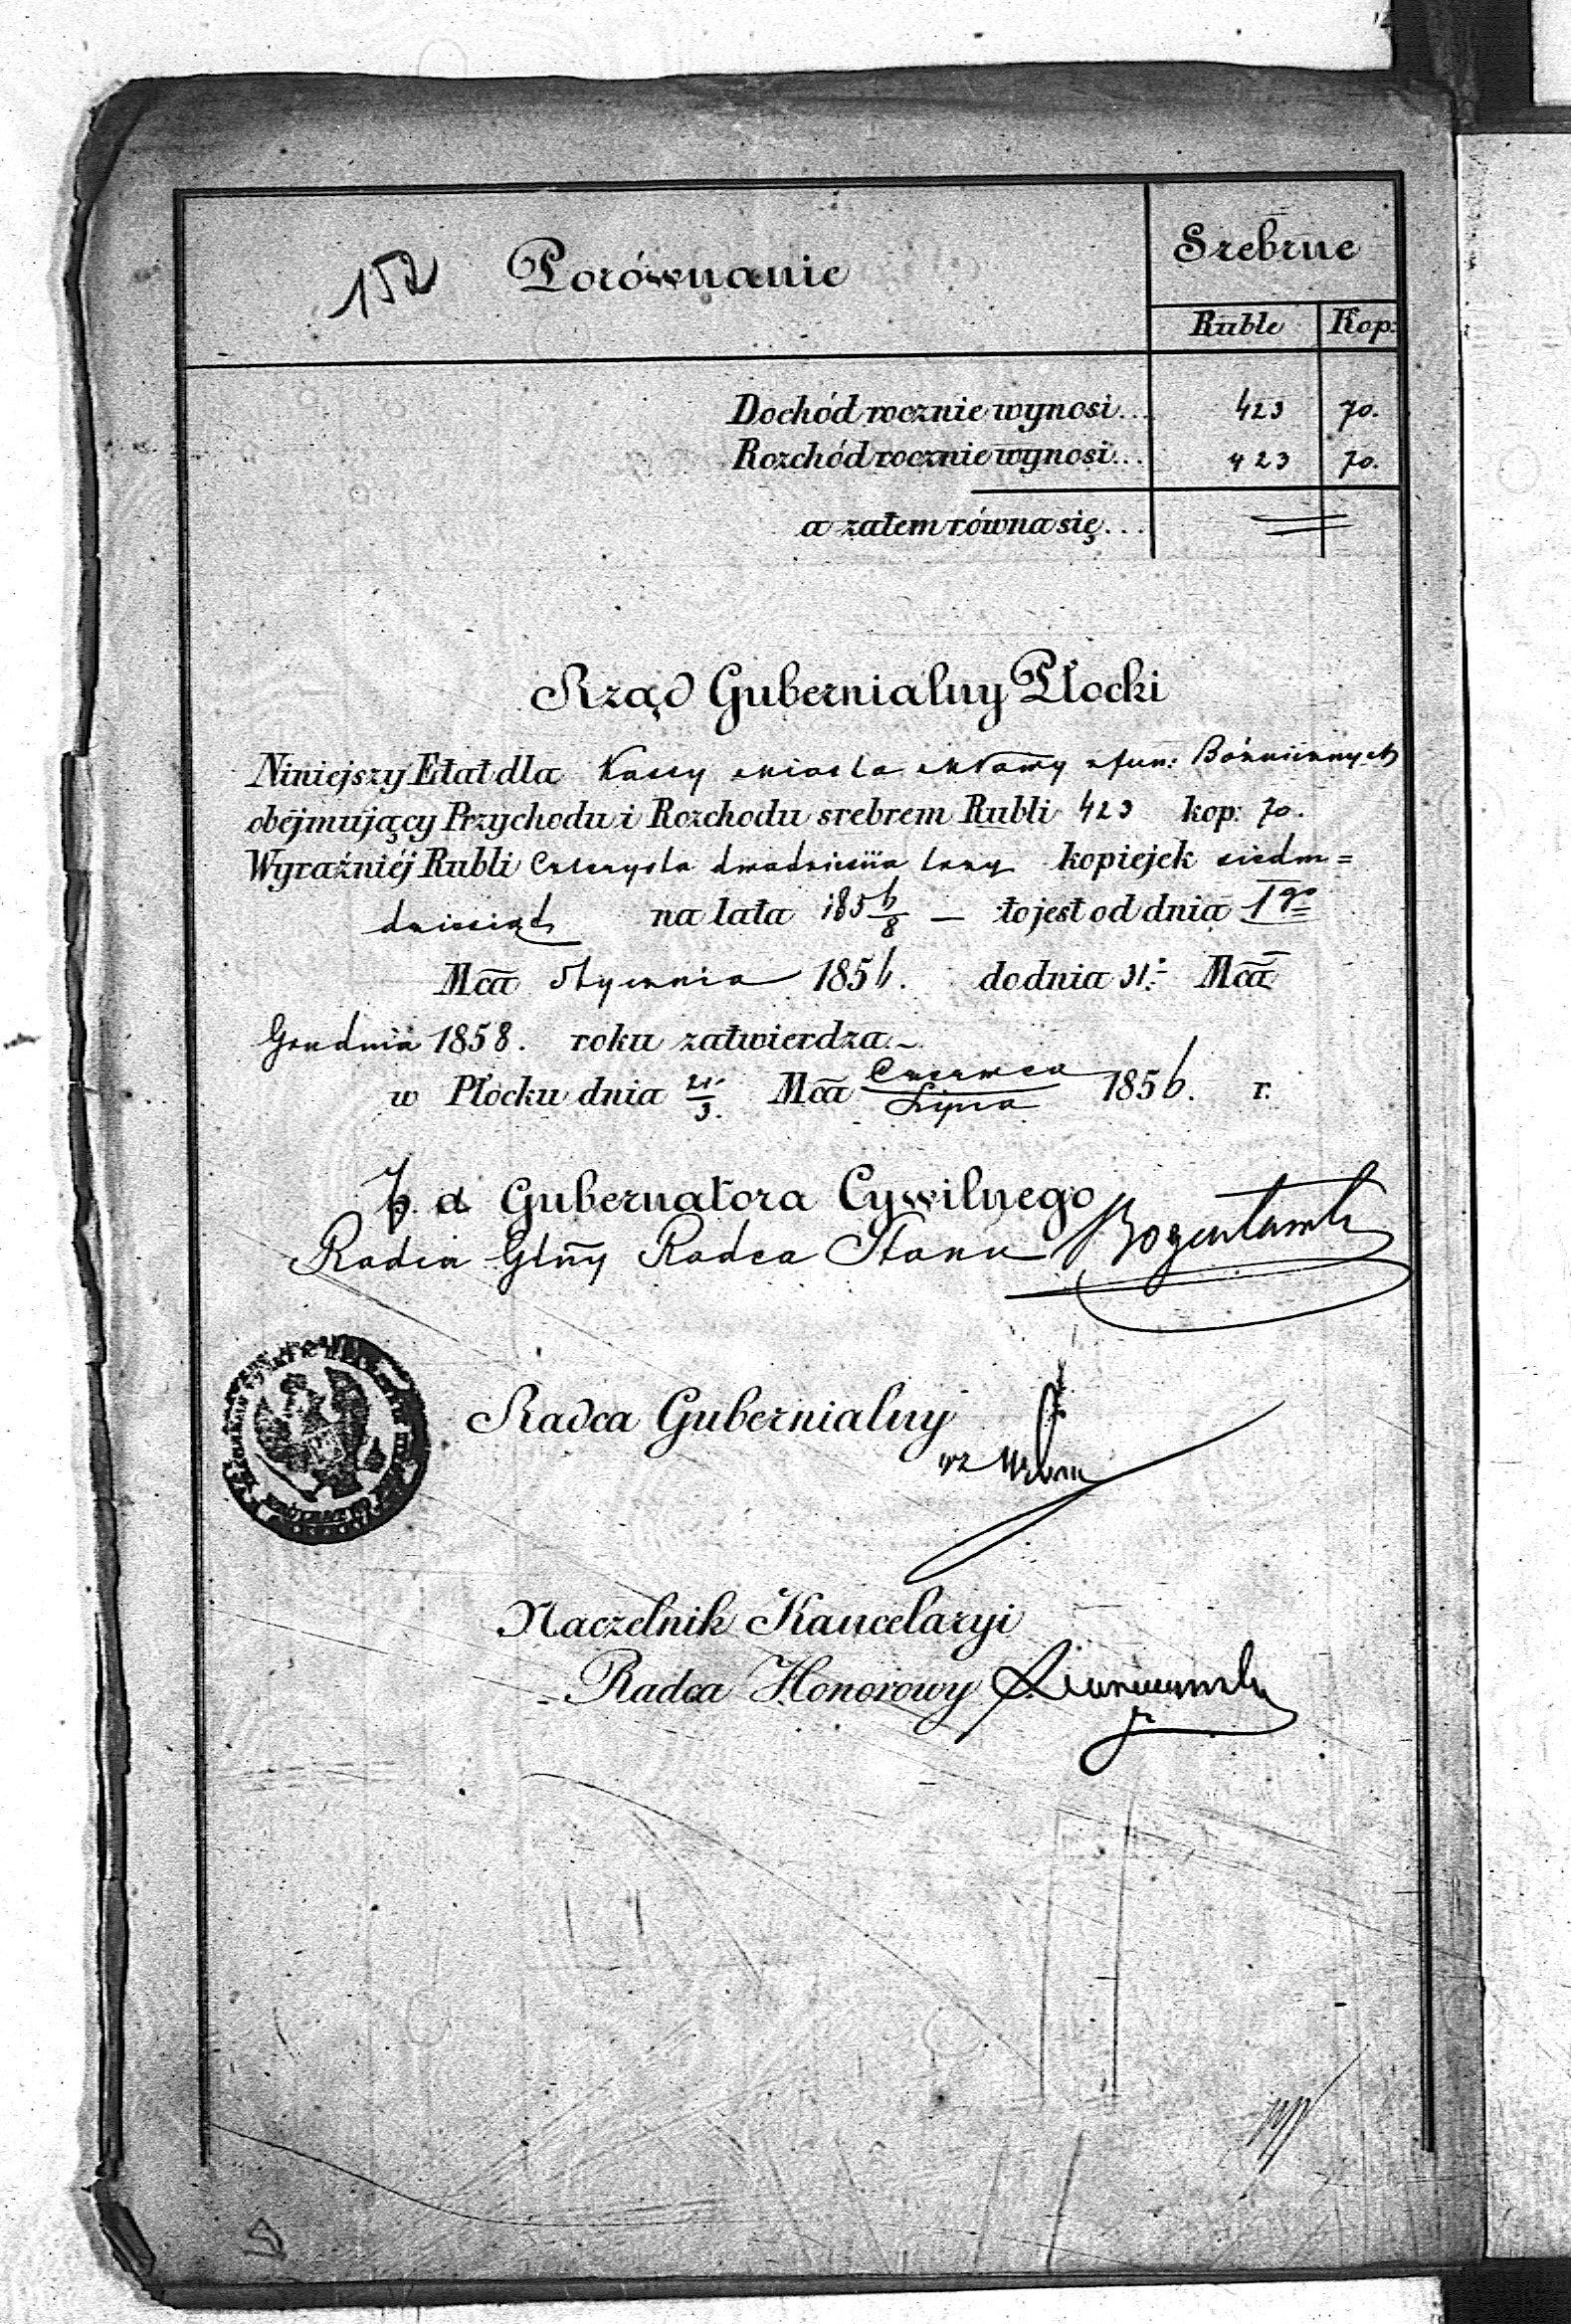 152 Porównanie
Srebrne
Ruble Kop:
Dochód rocznie wynosi... 423 70.
Rozchód rocznie wynosi... 423 70.
a zatem równa się...
Rząd Gubernialny Płocki
Niniejszy Etat dla Kassy miasta Mławy z fun: Bóżnicznych
obejmujący Przychodu i Rozchodu srebrem Rubli 423 kop: 70.
Wyraźniéj Rubli Czterysta dwadzieścia trzy kopiejek siedm=
dziesiąt na lata 1856/8 — to jest od dnia 1go
Mca Stycznia 1856. do dnia 31. Mca
Grudnia 1858. roku zatwierdza.
w Płocku dnia 21/3. Mca Czerwca/Lipca 1856. r.
p. o. Gubernatora Cywilnego
Radca Głny Radca Stanu
Radca Gubernialny
wz
Naczelnik Kancelaryi
Radca Honorowy